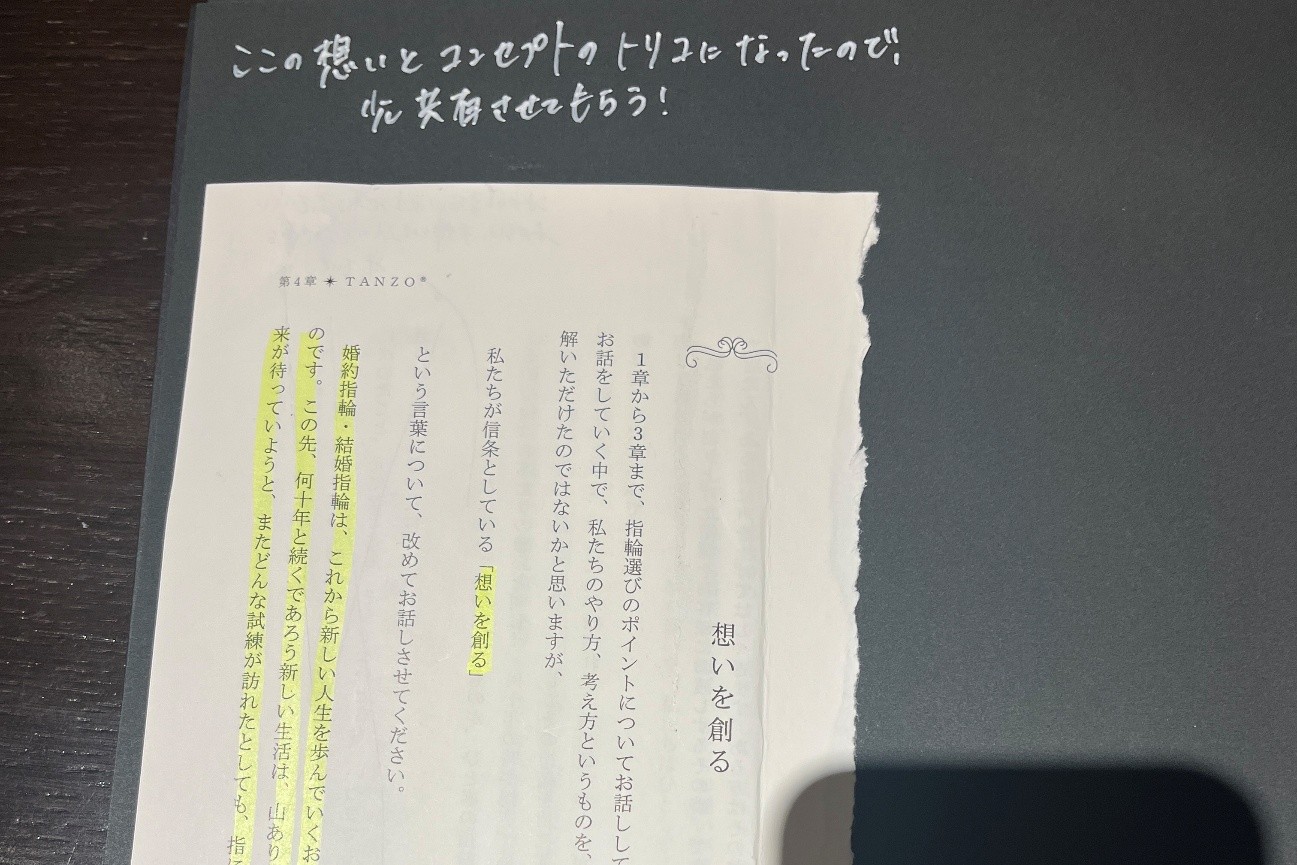 ここの想いとコンセプトのトリコになったので、
少し共有させてもらう!
第4章 TANZO®
想いを創る
1章から3章まで、指輪選びのポイントについてお話しして
お話をしていく中で、私たちのやり方、考え方というものを、
解いただけたのではないかと思いますが、
私たちが信条としている「想いを創る」
という言葉について、改めてお話しさせてください。
婚約指輪・結婚指輪は、これから新しい人生を歩んでいくお
のです。この先、何十年と続くであろう新しい生活は、山あり
来が待っていようと、またどんな試練が訪れたとしても、指